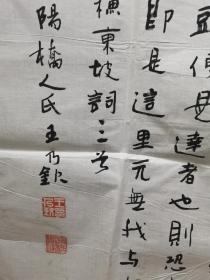 便是達者也則恐
即是這里元無我与
東坡詞三首
陽橋人氏王乃欽